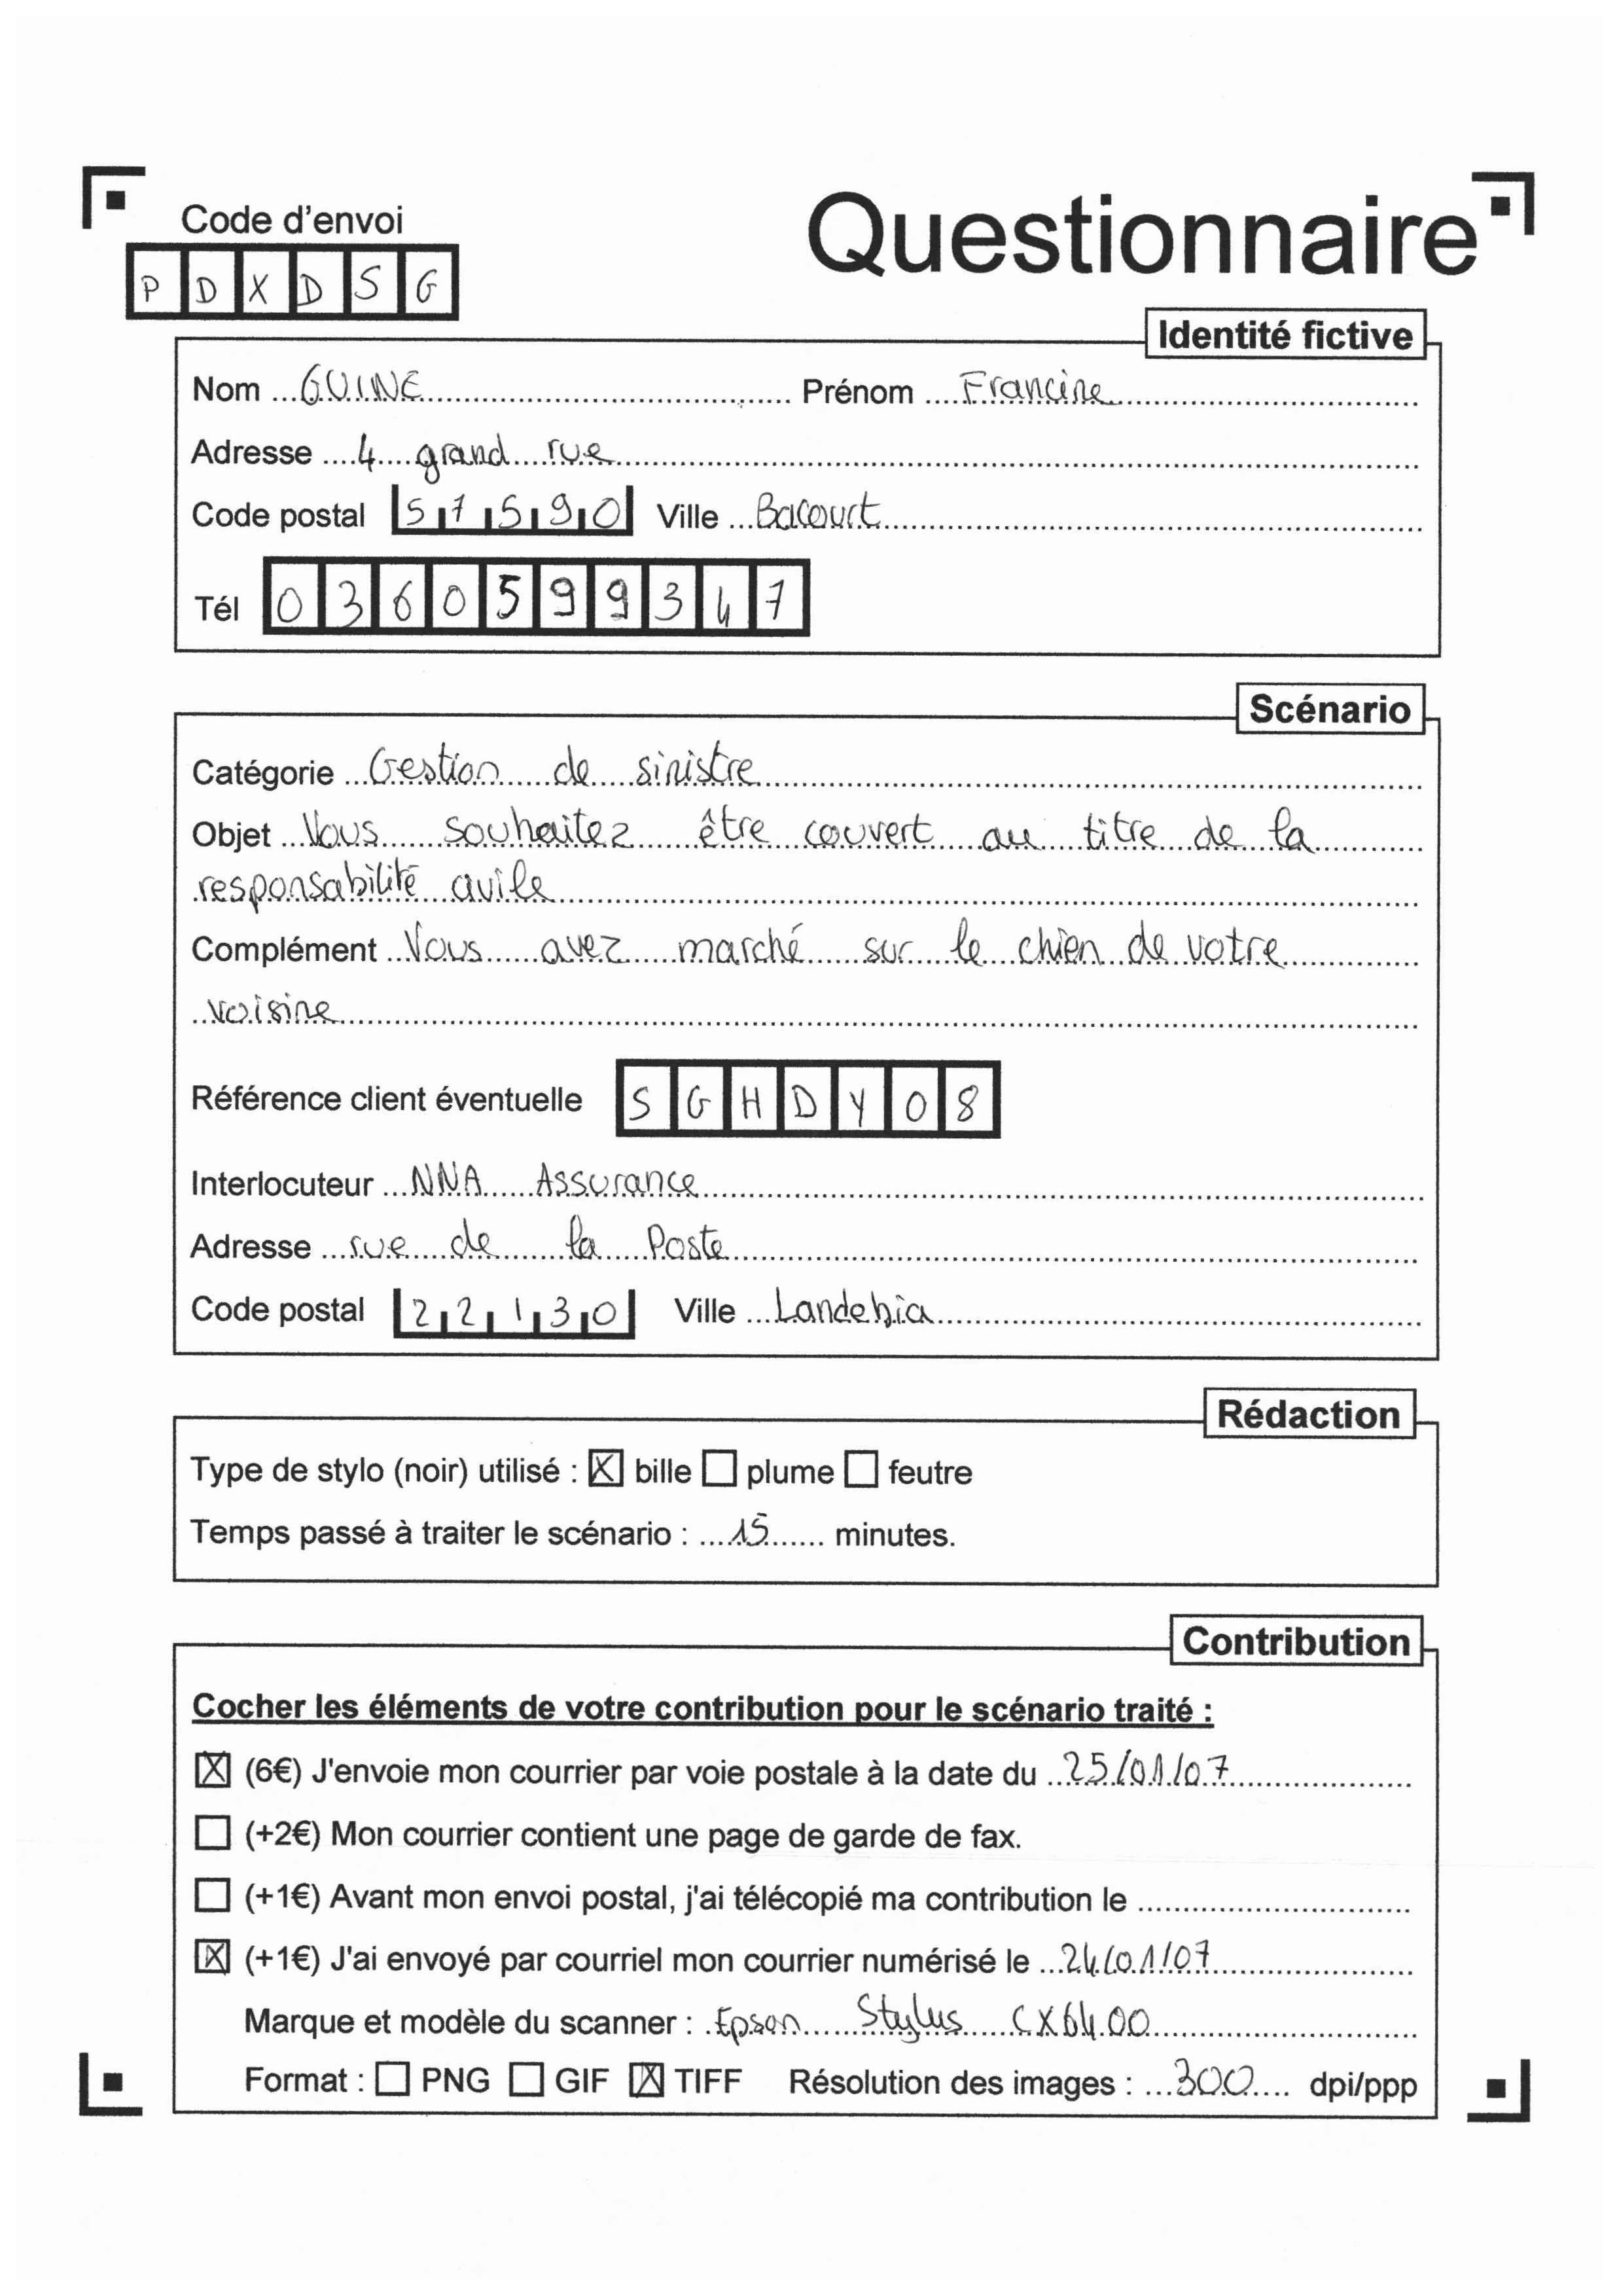 Code d'envoi
PDXDSG
Questionnaire
Identité fictive
Nom GUINE Prénom Francine
Adresse 4 grand rue
Code postal 57590 Ville Bacourt
Tél 0360599347
Scénario
Catégorie Gestion de sinistre
Objet Vous souhaitez être couvert au titre de la
responsabilité civile
Complément Vous avez marché sur le chien de votre
voisine
Référence client éventuelle SGHDY08
Interlocuteur NNA Assurance
Adresse rue de la Poste
Code postal 22130 Ville Landebia
Rédaction
Type de stylo (noir) utilisé : ☒ bille ☐ plume ☐ feutre
Temps passé à traiter le scénario : 15 minutes.
Contribution
Cocher les éléments de votre contribution pour le scénario traité :
☒ (6€) J'envoie mon courrier par voie postale à la date du 25/01/07
☐ (+2€) Mon courrier contient une page de garde de fax.
☐ (+1€) Avant mon envoi postal, j'ai télécopié ma contribution le
☒ (+1€) J'ai envoyé par courriel mon courrier numérisé le 24/01/07
Marque et modèle du scanner : Epson Stylus CX6400
Format : ☐ PNG ☐ GIF ☒ TIFF Résolution des images : 300 dpi/ppp